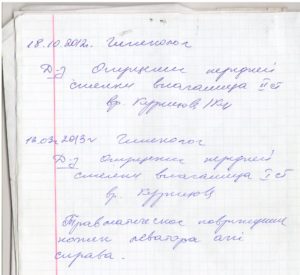 18.10.2012г. Гинеколог
Д-з Опущение передней
стенки влагалища II ст
вр. Курников
12.03.2013г Гинеколог
Д-з Опущение передней
стенки влагалища I ст
вр. Курников
Травматическое повреждение
ножек леватора ani
справа.